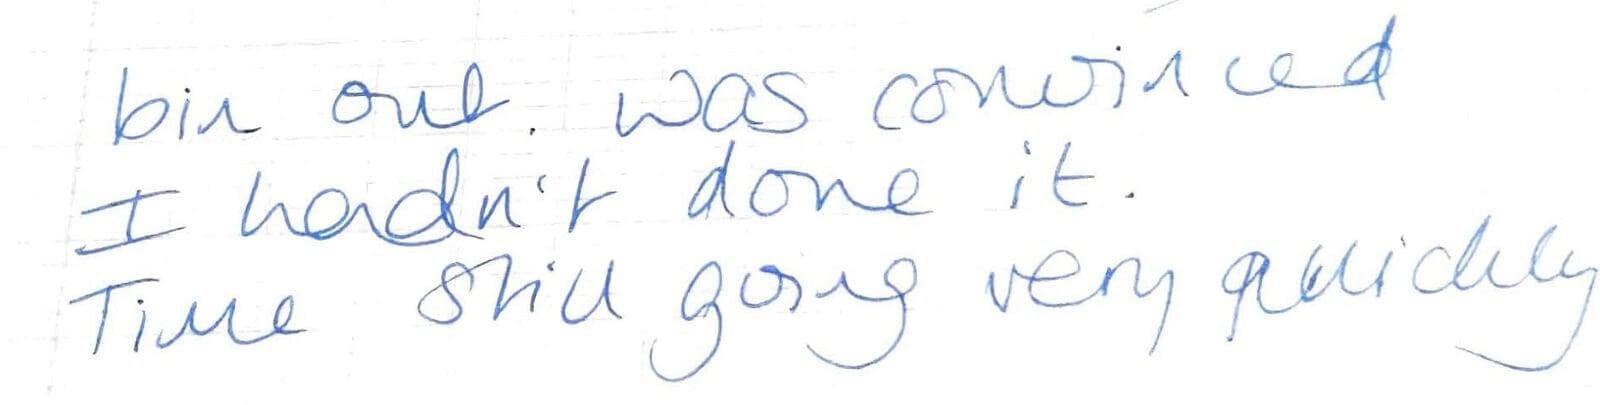 bin out. was convinced
I hadn't done it.
Time still going very quickly